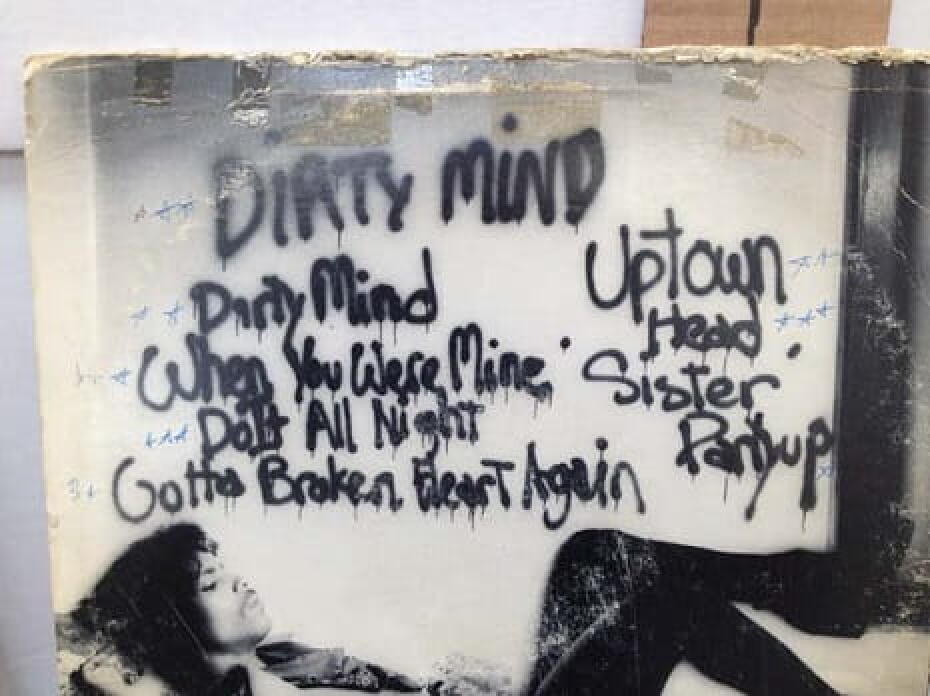 DiRTY MiND
Dirty Mind
When You Were Mine
Do It All Night
Gotta Broken Heart Again
Uptown
Head
Sister
Partyup